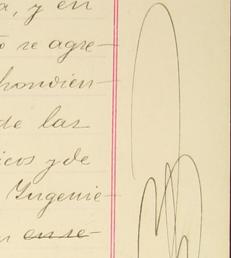 a, y en
o se agre-
pondien-
de las
icos y de
Ingenie-
n ense-